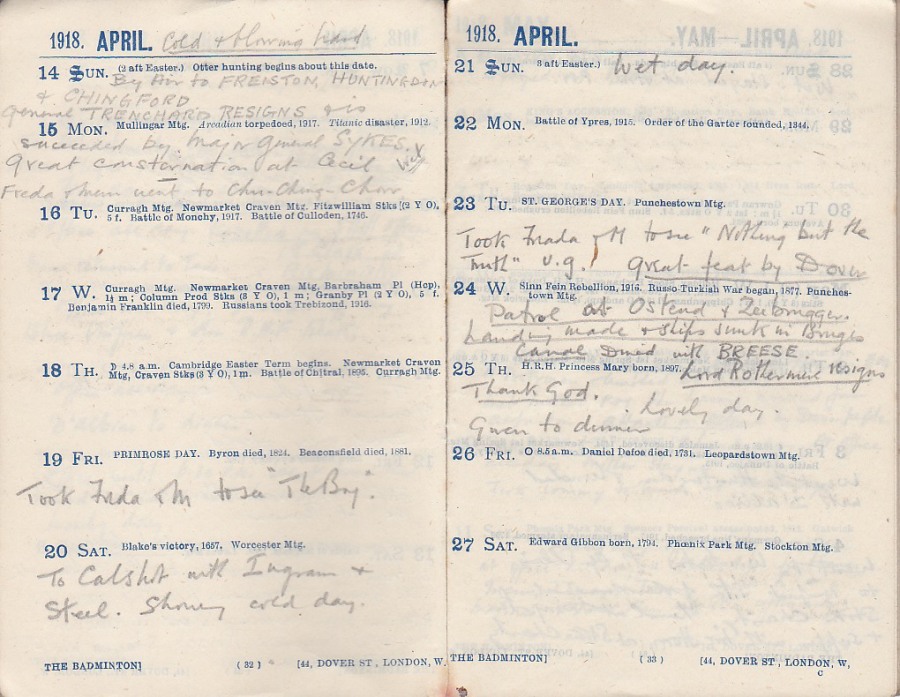 1918. APRIL. Cold & blowing hard
14 SUN. (2 aft Easter.) Otter hunting begins about this date.
By Air to FREISTON, HUNTINGDON
& CHINGFORD
General TRENCHARD RESIGNS & is
15 MON. Mullingar Mtg. Arcadian torpedoed, 1917. Titanic disaster, 1912.
succeeded by Major General SYKES.
Great consternation at Cecil Wet
Freda & Mem went to Chu-Ching-Chow
16 TU. Curragh Mtg. Newmarket Craven Mtg. Fitzwilliam Stks [(2 Y O),
5 f. Battle of Monchy, 1917. Battle of Culloden, 1746.
17 W. Curragh Mtg. Newmarket Craven Mtg, Barbraham Pl (Hop),
1½ m; Column Prod Stks (3 Y O), 1 m; Granby Pl (2 Y O), 5 f.
Benjamin Franklin died, 1799. Russians took Trebizond, 1916.
18 TH. ☽ 4.8 a.m. Cambridge Easter Term begins. Newmarket Craven
Mtg, Craven Stks (3 Y O), 1 m. Battle of Chitral, 1895. Curragh Mtg.
19 FRI. PRIMROSE DAY. Byron died, 1824. Beaconsfield died, 1881.
Took Freda & M to see "The Boy".
20 SAT. Blake's victory, 1657. Worcester Mtg.
To Calshot with Ingram &
Steel. Showery cold day.
THE BADMINTON] (32) [44, DOVER ST, LONDON, W.
1918. APRIL.
21 SUN. 3 aft Easter.) Wet day.
22 MON. Battle of Ypres, 1915. Order of the Garter founded, 1344.
23 TU. ST. GEORGE'S DAY. Punchestown Mtg.
Took Freda & M to see "Nothing but the
Truth" v.g.! Great feat by Dover
24 W. Sinn Fein Rebellion, 1916. Russo-Turkish War began, 1877. Punches-
town Mtg.
Patrol at Ostend & Zeebrugge.
Landing made & ships sunk in Bruges
Canal Dined with BREESE.
25 TH. H.R.H. Princess Mary born, 1897. Lord Rothermere resigns
Thank God. Lovely day.
Gwen to dinner
26 FRI. O 8.5 a.m. Daniel Defoe died, 1731. Leopardstown Mtg.
27 SAT. Edward Gibbon born, 1794. Phœnix Park Mtg. Stockton Mtg.
THE BADMINTON] (33) [44, DOVER ST, LONDON, W,
C